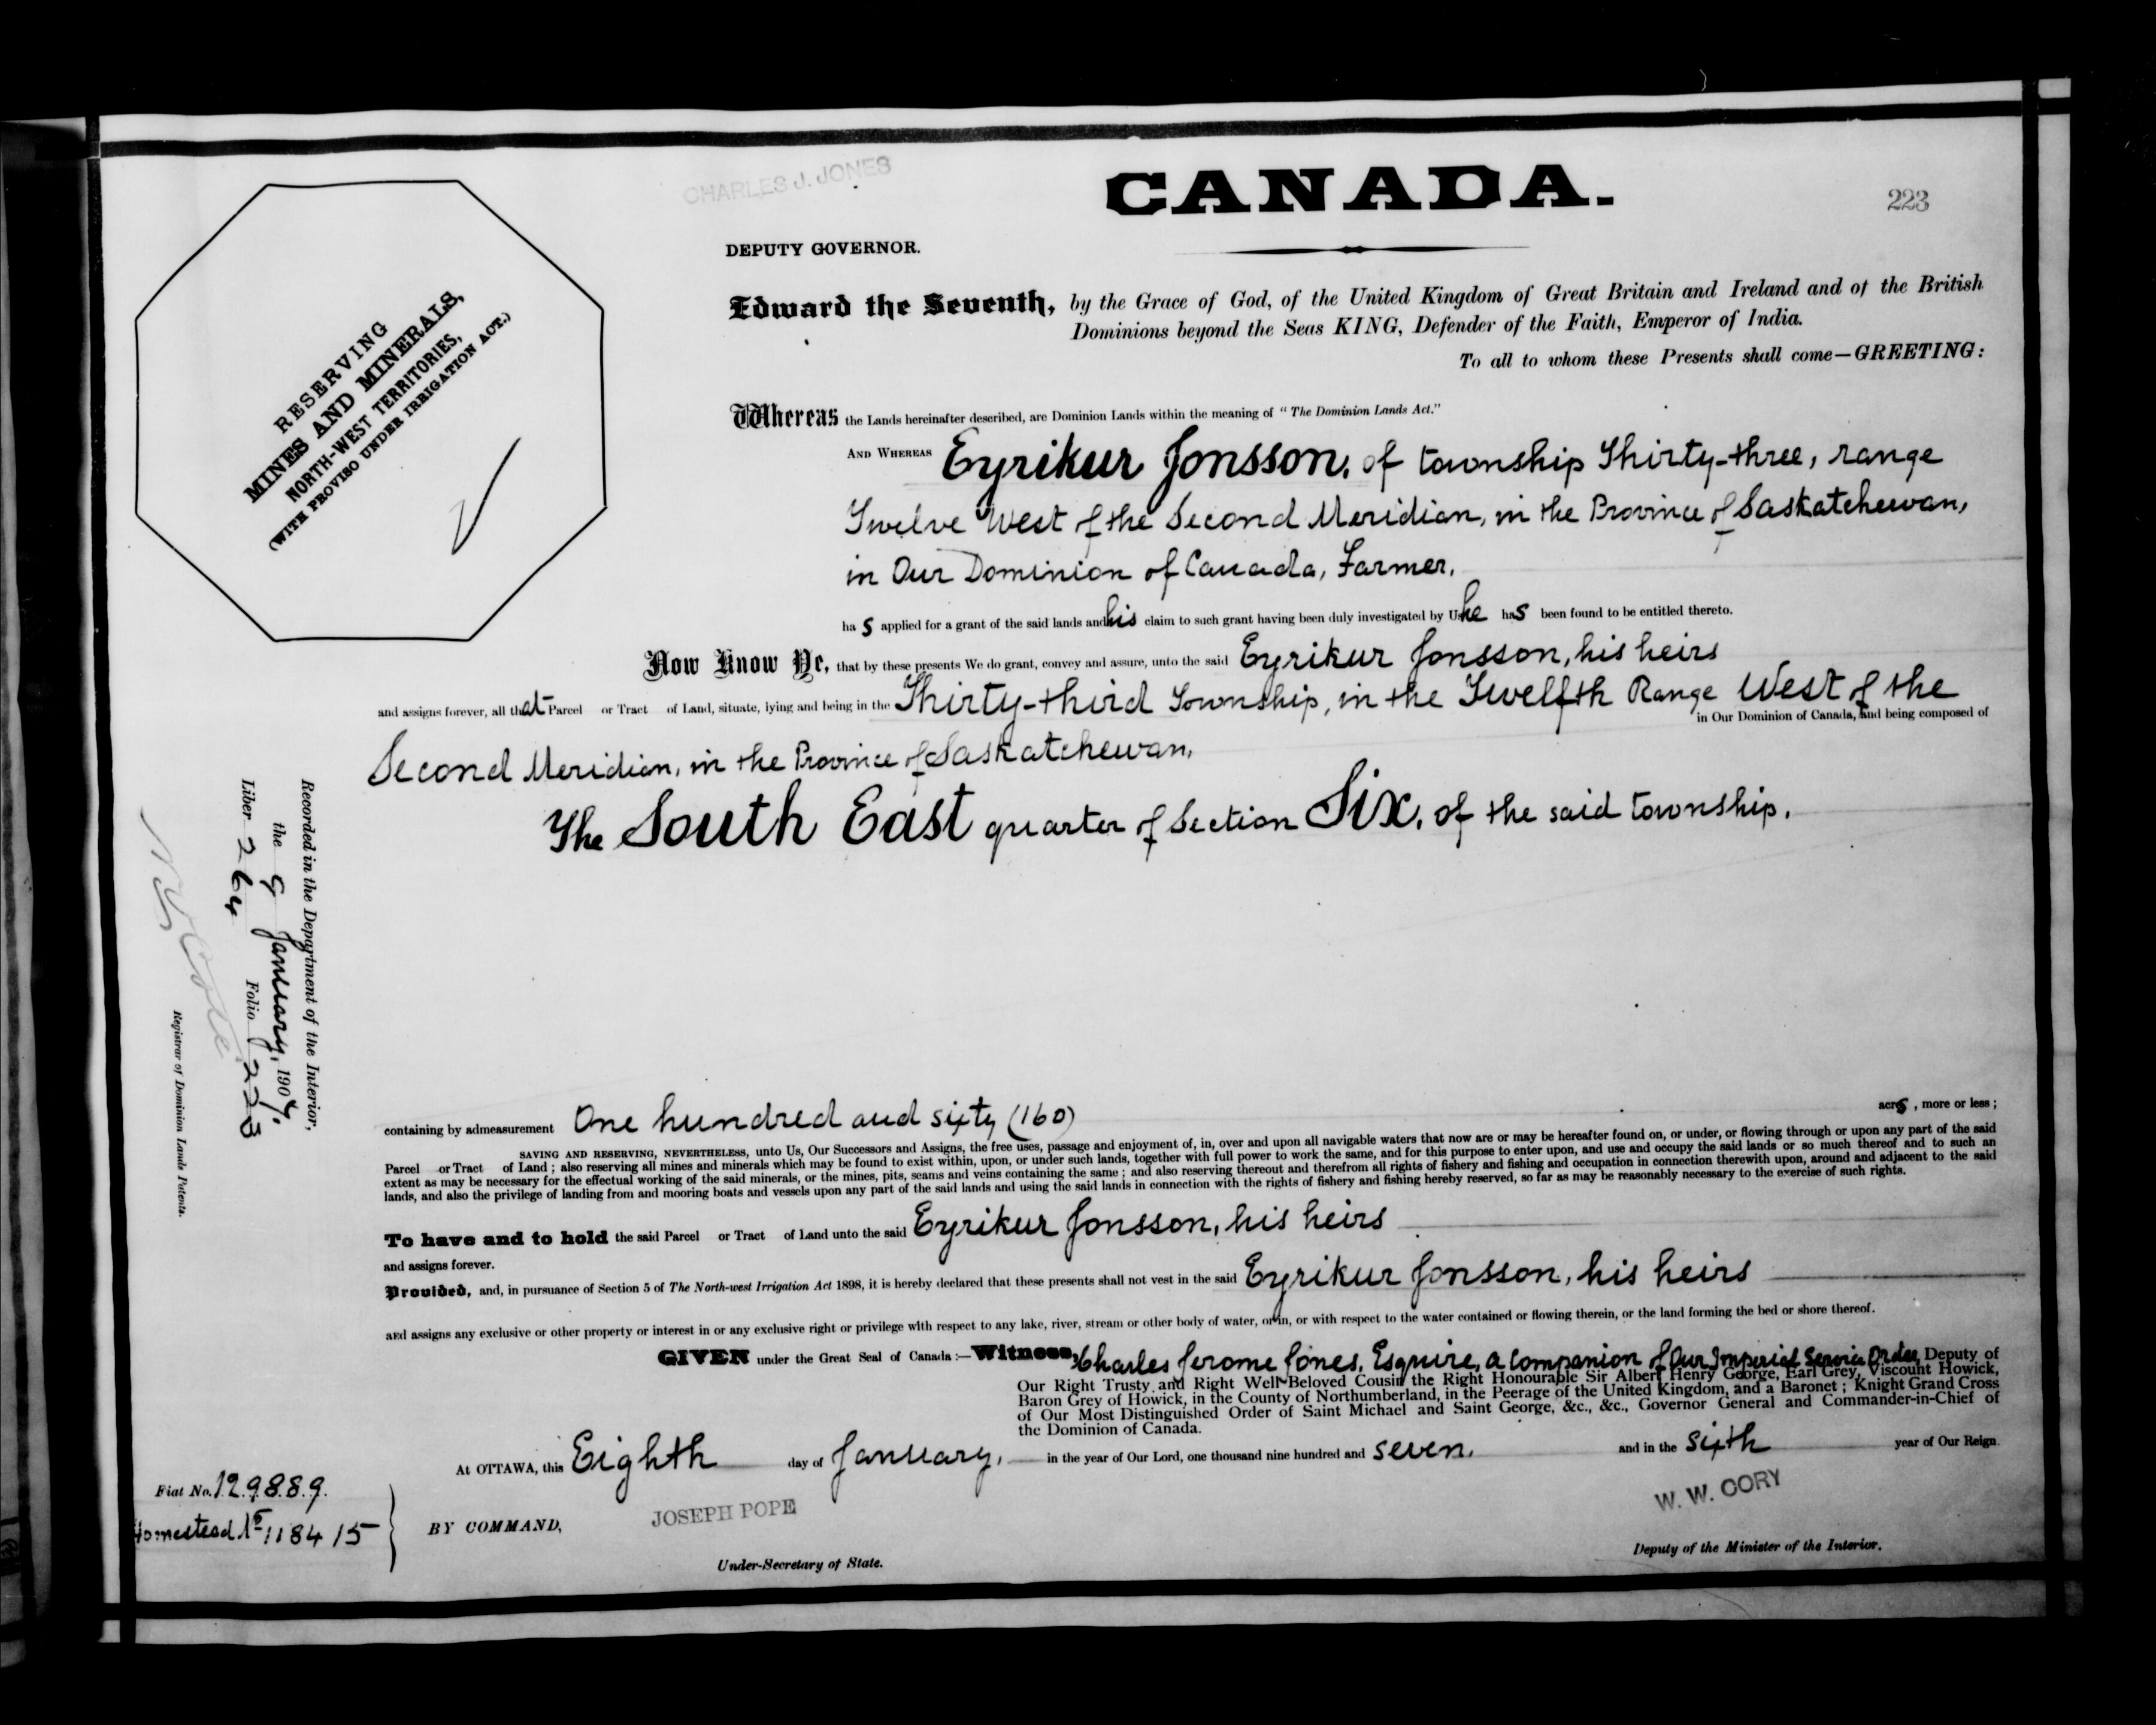 CHARLES J. JONES
CANADA.
223
DEPUTY GOVERNOR.
RESERVING
MINES AND MINERALS,
NORTH-WEST TERRITORIES,
(WITH PROVISO UNDER IRRIGATION ACT.)
Edward the Seventh, by the Grace of God, of the United Kingdom of Great Britain and Ireland and of the British
Dominions beyond the Seas KING, Defender of the Faith, Emperor of India.
To all to whom these Presents shall come—GREETING:
Whereas the Lands hereinafter described, are Dominion Lands within the meaning of "The Dominion Lands Act."
AND WHEREAS Eyrikur Jonsson, of township Thirty-three, range
Twelve West of the Second Meridian, in the Province of Saskatchewan,
in Our Dominion of Canada, Farmer,
has applied for a grant of the said lands and his claim to such grant having been duly investigated by Us he has been found to be entitled thereto.
Now Know Ye, that by these presents We do grant, convey and assure, unto the said Eyrikur Jonsson, his heirs
and assigns forever, all that Parcel or Tract of Land, situate, lying and being in the Thirty-third Township, in the Twelfth Range West of the
in Our Dominion of Canada, and being composed of
Second Meridian, in the Province of Saskatchewan,
The South East quarter of Section Six, of the said township,
Recorded in the Department of the Interior,
the 9 January, 1907.
Liber 264 Folio 223
Registrar of Dominion Lands Patents.
containing by admeasurement One hundred and sixty (160) acres, more or less;
SAVING AND RESERVING, NEVERTHELESS, unto Us, Our Successors and Assigns, the free uses, passage and enjoyment of, in, over and upon all navigable waters that now are or may be hereafter found on, or under, or flowing through or upon any part of the said
Parcel or Tract of Land; also reserving all mines and minerals which may be found to exist within, upon, or under such lands, together with full power to work the same, and for this purpose to enter upon, and use and occupy the said lands or so much thereof and to such an
extent as may be necessary for the effectual working of the said minerals, or the mines, pits, seams and veins containing the same; and also reserving thereout and therefrom all rights of fishery and fishing and occupation in connection therewith upon, around and adjacent to the said
lands, and also the privilege of landing from and mooring boats and vessels upon any part of the said lands and using the said lands in connection with the rights of fishery and fishing hereby reserved, so far as may be reasonably necessary to the exercise of such rights.
To have and to hold the said Parcel or Tract of Land unto the said Eyrikur Jonsson, his heirs
and assigns forever.
Provided, and, in pursuance of Section 5 of The North-west Irrigation Act 1898, it is hereby declared that these presents shall not vest in the said Eyrikur Jonsson, his heirs
and assigns any exclusive or other property or interest in or any exclusive right or privilege with respect to any lake, river, stream or other body of water, or in, or with respect to the water contained or flowing therein, or the land forming the bed or shore thereof.
GIVEN under the Great Seal of Canada:—Witness, Charles Jerome Jones, Esquire, a Companion of Our Imperial Service Order, Deputy of
Our Right Trusty and Right Well-Beloved Cousin the Right Honourable Sir Albert Henry George, Earl Grey, Viscount Howick,
Baron Grey of Howick, in the County of Northumberland, in the Peerage of the United Kingdom, and a Baronet; Knight Grand Cross
of Our Most Distinguished Order of Saint Michael and Saint George, &c., &c., Governor General and Commander-in-Chief of
the Dominion of Canada.
At OTTAWA, this Eighth day of January, in the year of Our Lord, one thousand nine hundred and seven. and in the sixth year of Our Reign.
Fiat No. 129889.
Homestead No 118415
BY COMMAND,
JOSEPH POPE
Under-Secretary of State.
W. W. CORY
Deputy of the Minister of the Interior.